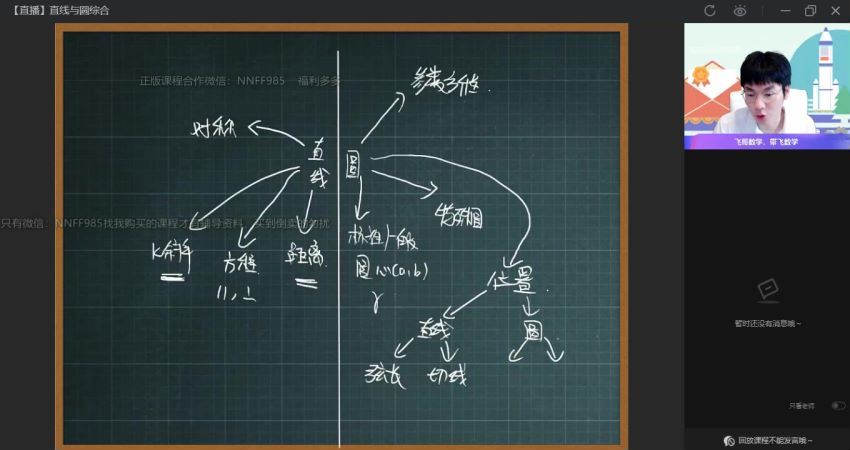 【直播】直线与圆综合
正版课程合作微信：NNFF985 福利多多
参数方程.
对称
直线
圆
特殊圆
只有微信：NNFF985找我购买的课程才有辅导资料，买到倒卖的勿扰
K斜率
方程
距离
标准/一般
//，⊥
圆心(a,b)
r
位置.
直线
圆
弦长
切线
飞哥数学，带飞数学
暂时还没有消息哦~
只看老师
回放课程不能发言哦~